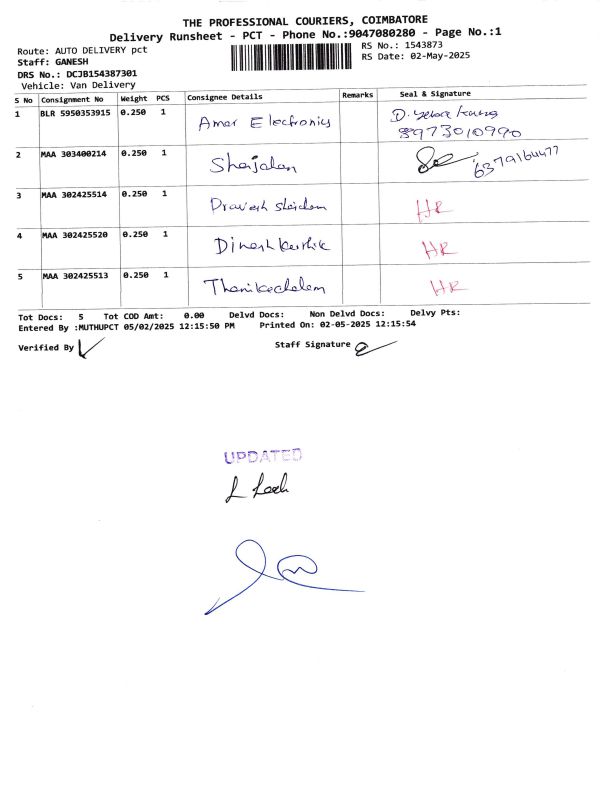 THE PROFESSIONAL COURIERS, COIMBATORE
Delivery Runsheet - PCT - Phone No.:9047080280 - Page No.:1
Route: AUTO DELIVERY pct
RS No.: 1543873
Staff: GANESH
RS Date: 02-May-2025
DRS No.: DCJB154387301
Vehicle: Van Delivery
S No Consignment No Weight PCS Consignee Details Remarks Seal & Signature
1 BLR 5950353915 0.250 1 Amar Electronics D.
8973010990
2 MAA 303400214 0.250 1 Shajalan
3 MAA 302425514 0.250 1 HR
4 MAA 302425520 0.250 1 Dinesh Karthik HR
5 MAA 302425513 0.250 1 Thanikachalam HR
Tot Docs: 5 Tot COD Amt: 0.00 Delvd Docs: Non Delvd Docs: Delvy Pts:
Entered By :MUTHUPCT 05/02/2025 12:15:50 PM Printed On: 02-05-2025 12:15:54
Verified By
Staff Signature
UPDATED